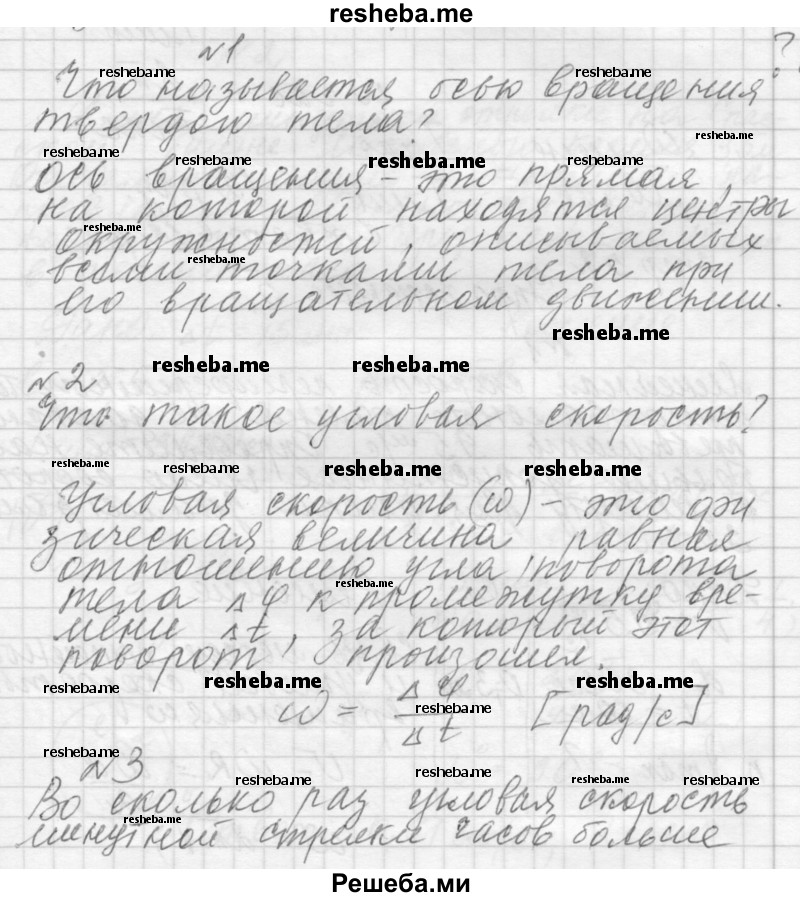 resheba.me
№1
resheba.me resheba.me ?
Что называется осью вращения
твердого тела?
resheba.me
resheba.me resheba.me resheba.me resheba.me
Ось вращения - это прямая,
на которой находятся центры
resheba.me
окружностей, описываемых
resheba.me
всеми точками тела при
его вращательном движении.
resheba.me
resheba.me resheba.me
№2
Что такое угловая скорость?
resheba.me resheba.me resheba.me resheba.me
Угловая скорость (ω) - это фи
зическая величина равная
отношению угла поворота
resheba.me
тела Δφ к промежутку вре-
мени Δt, за который этот
поворот произошел.
resheba.me resheba.me resheba.me
ω = Δφ/Δt [рад/с]
resheba.me
resheba.me
№3
resheba.me resheba.me resheba.me resheba.me
Во сколько раз угловая скорость
resheba.me
минутной стрелки часов больше
Решеба.ми